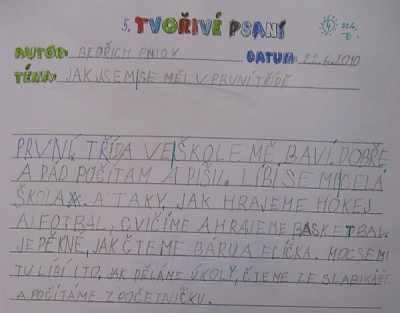 5. TVOŘIVÉ PSANÍ
AUTOR: BEDŘICH DATUM: 22.6.2010
TÉMA: JAK JSEM SE MĚL V PRVNÍ TŘÍDĚ
PRVNÍ TŘÍDA VE ŠKOLE MĚ BAVÍ. DOBŘE
A RÁD POČÍTÁM A PÍŠU. LÍBÍ SE MI DELÁ
ŠKOLA. A TAKY, JAK HRAJEME HOKEJ
A I FOTBAL, CVIČÍME A HRAJEME BASKETBAL.
JE PĚKNÉ, JAK ČTEME BÁRU A ELÍČKA. MOC SE MI
TU LÍBÍ I TO, JAK DĚLÁME ÚKOLY, ČTEME ZE SLABIKÁŘE
A POČÍTÁME Z POČETNÍČKU.